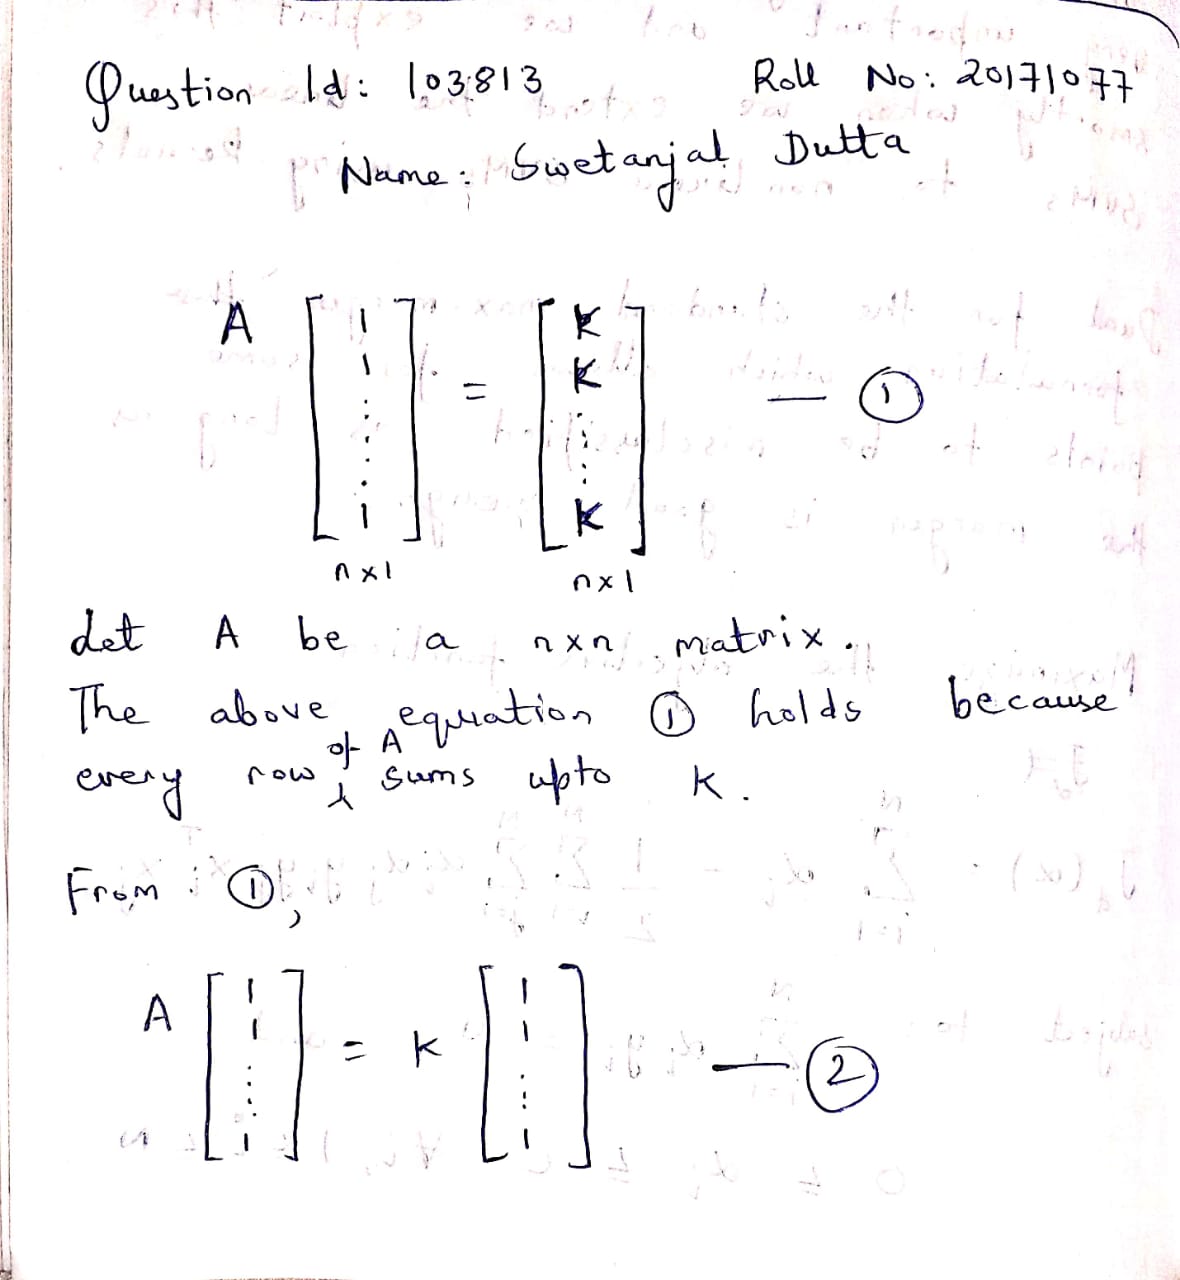 Question Id: 103813 Roll No: 20171077
Name: Swetanjal Dutta
A [1 1 ⋮ 1] = [K K ⋮ K] — ①
n×1 n×1
Let A be a n×n matrix.
The above equation ① holds because
every row of A sums upto K.
From ①,
A [1 1 ⋮ 1] = K [1 1 ⋮ 1] — ②